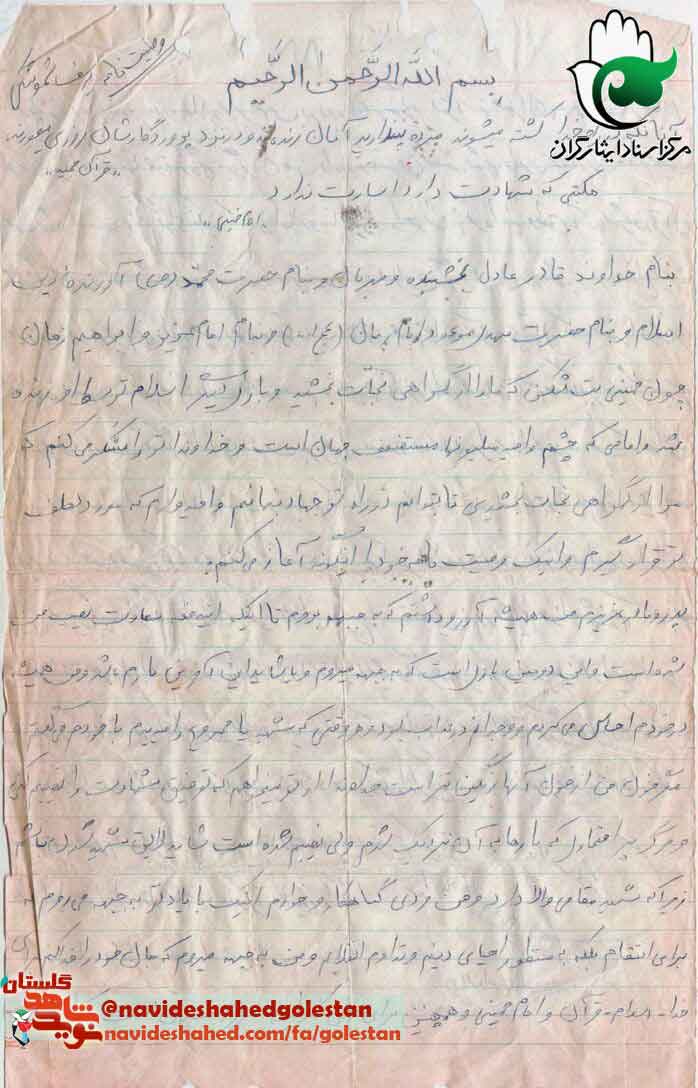 وصیت نامه
مرکز اسناد ایثارگران
بسم الله الرحمن الرحیم
آنانکه خدا کشته میشوند مرده نپندارید آنان زنده و در نزد پروردگارشان روزی میخورند.
"قرآن مجید"
مکتبی که شهادت دارد اسارت ندارد
"امام خمینی"
بنام خداوند قادر عادل بخشنده و مهربان و بنام حضرت محمد (ص) آورنده دین
اسلام و بنام حضرت مهدی موعود امام زمان (عج) و بنام امام خمینی و ابراهیم زمان
چون خمینی بت شکن که ما را از گمراهی نجات بخشید و بار دیگر اسلام توسط او زنده
شد و امامی که چشم و امید میلیونها مستضعف جهان است و خداوندا تو را شکر می کنم که
مرا از گمراهی نجات بخشیدی تا بتوانم در راه تو جهاد نمایم و امیدوارم که مورد لطف
تو قرار گیرم و اینک وصیت نامه خود را اینگونه آغاز می کنم.
پدر و مادر عزیزم من همیشه آرزو داشتم که به جبهه بروم تا اینکه این سعادت نصیب من
شده است و این دومین بار است که به جبهه میروم و یا شاید این آخرین بارم باشد و من همیشه
در خودم احساس می کردم و وجدانم در عذاب بود و هر وقتی که شهید یا مجروح را میدیدم با خودم میگفتم
مگر خون من از خون آنها رنگین تر است خداوندا از تو میخواهم که توفیق شهادت را نصیبم کنی
و مرگ پر افتخار که بارها به آن نزدیک شدم ولی نصیبم نشده است شاید لایق شهید شدن نباشم
زیرا که شهید مقامی والا دارد و من فردی گناهکار و خوارم اینک با یاد تو به جبهه می روم نه
برای انتقام بلکه به منظور احیای دینم و تداوم انقلابم و من به جبهه میروم که جان خود را فدا کنم برای
خدا - اسلام - قرآن و امام خمینی و همچنین
نوید شاهد گلستان
@navideshahedgolestan
navideshahed.com/fa/golestan